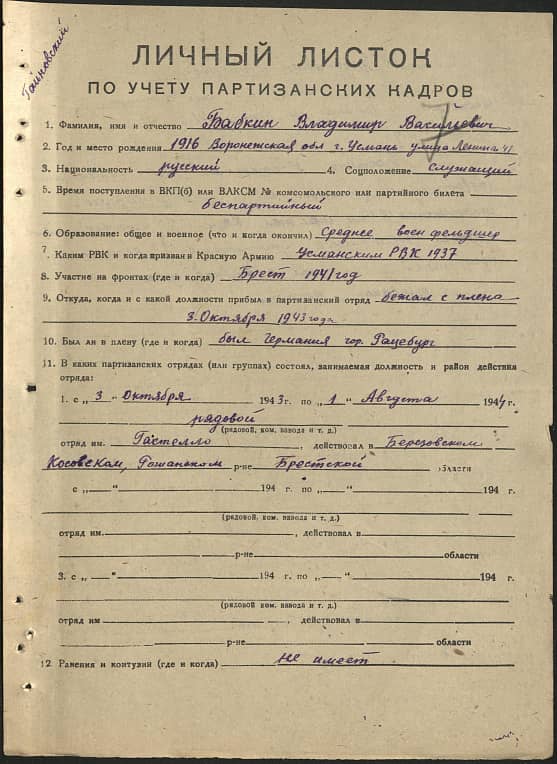 Гайновский
ЛИЧНЫЙ ЛИСТОК
ПО УЧЕТУ ПАРТИЗАНСКИХ КАДРОВ
1. Фамилия, имя и отчество Бабкин Владимир Васильевич
2. Год и место рождения 1916 Воронежская обл г. Усмань улица Ленина 41
3. Национальность русский 4. Соцположение служащий
5. Время поступления в ВКП(б) или ВЛКСМ № комсомольского или партийного билета
беспартийный
6. Образование: общее и военное (что и когда окончил) Среднее воен фельдшер
7. Каким РВК и когда призван в Красную Армию Усманским РВК 1937
8. Участие на фронтах (где и когда) Брест 1941 год
9. Откуда, когда и с какой должности прибыл в партизанский отряд бежал с плена
3. Октября 1943 года
10. Был ли в плену (где и когда) был Германия гор. Рацебург
11. В каких партизанских отрядах (или группах) состоял, занимаемая должность и район действия
отряда:
1. с „ 3 " Октября 1943 г. по „ 1 " Августа 1944 г.
рядовой
(рядовой, ком. взвода и т. д.)
отряд им. Гастелло, действовал в Березовском
Косовском, р-не Брестской области
с „ " 194 г. по „ " 194 г.
(рядовой, ком. взвода и т. д.)
отряд им. , действовал в
р-не области
3. с „ " 194 г. по „ " 194 г.
(рядовой, ком. взвода и т. д.)
отряд им , действовал в
р-не области
12 Ранения и контузии (где и когда) не имеет